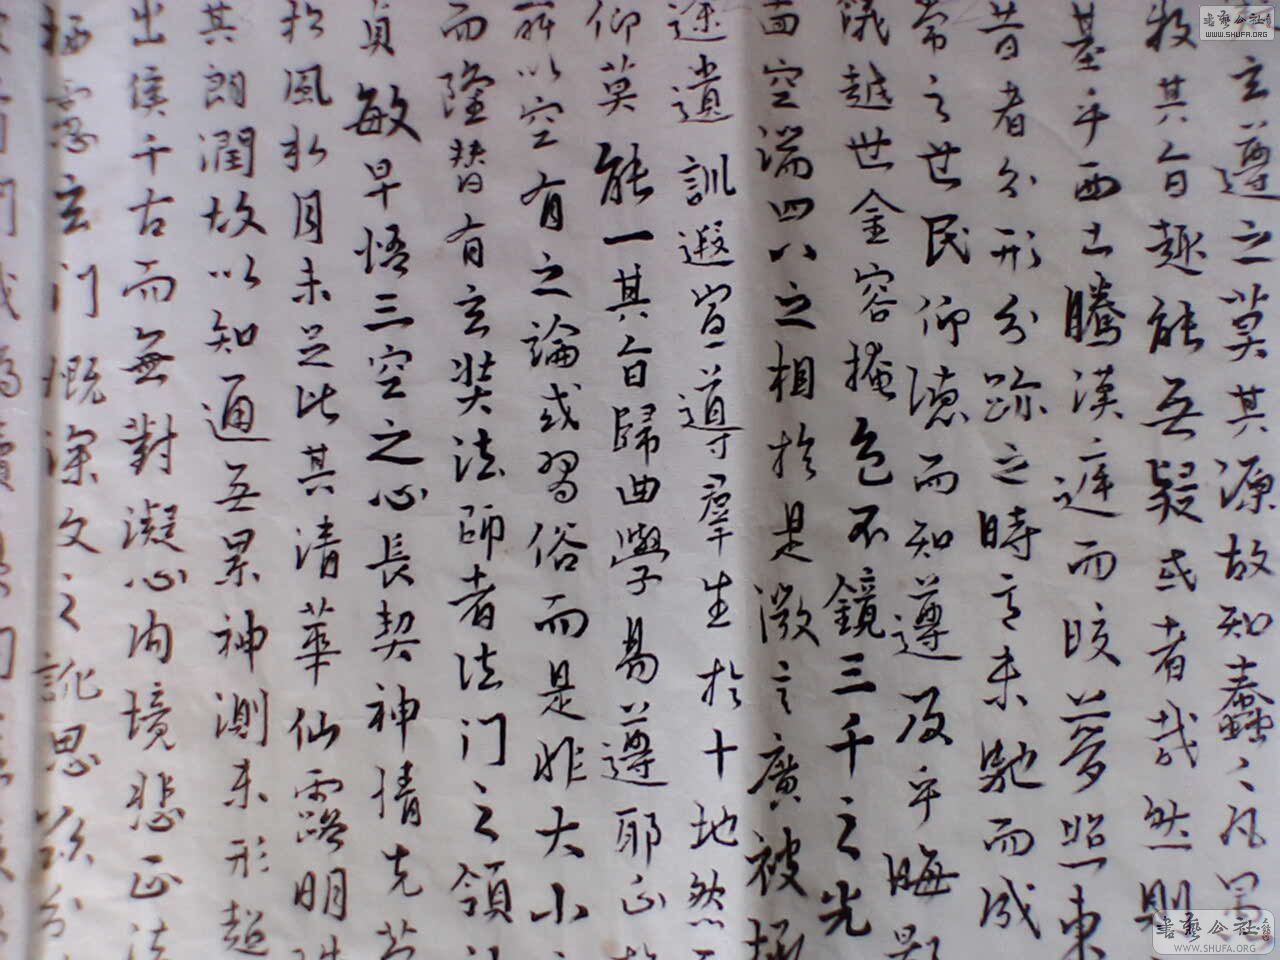 玄遵之莫其源故知蠢々凡
教其旨趣能無疑或者哉然則
基乎西土騰漢庭而皎夢照東
昔者分形分跡之時言未馳而成
常之世民仰德而知遵及乎晦影
儀越世金容掩色不鏡三千之光
面空端四八之相於是微言廣被拯
途遺訓遐宣導群生於十地然
仰莫能一其旨歸曲學易遵耶正
所以空有之論或習俗而是非大小
而隆替有玄奘法師者法門之領
貞敏早悟三空之心長契神情先苞
松風水月未足比其清華仙露明珠
其朗潤故以知通無累神測未形超
出隻千古而無對凝心內境悲正法
栖霊玄門慨深文之訛思欲分
書藝公社
WWW.SHUFA.ORG
書藝公社
WWW.SHUFA.ORG